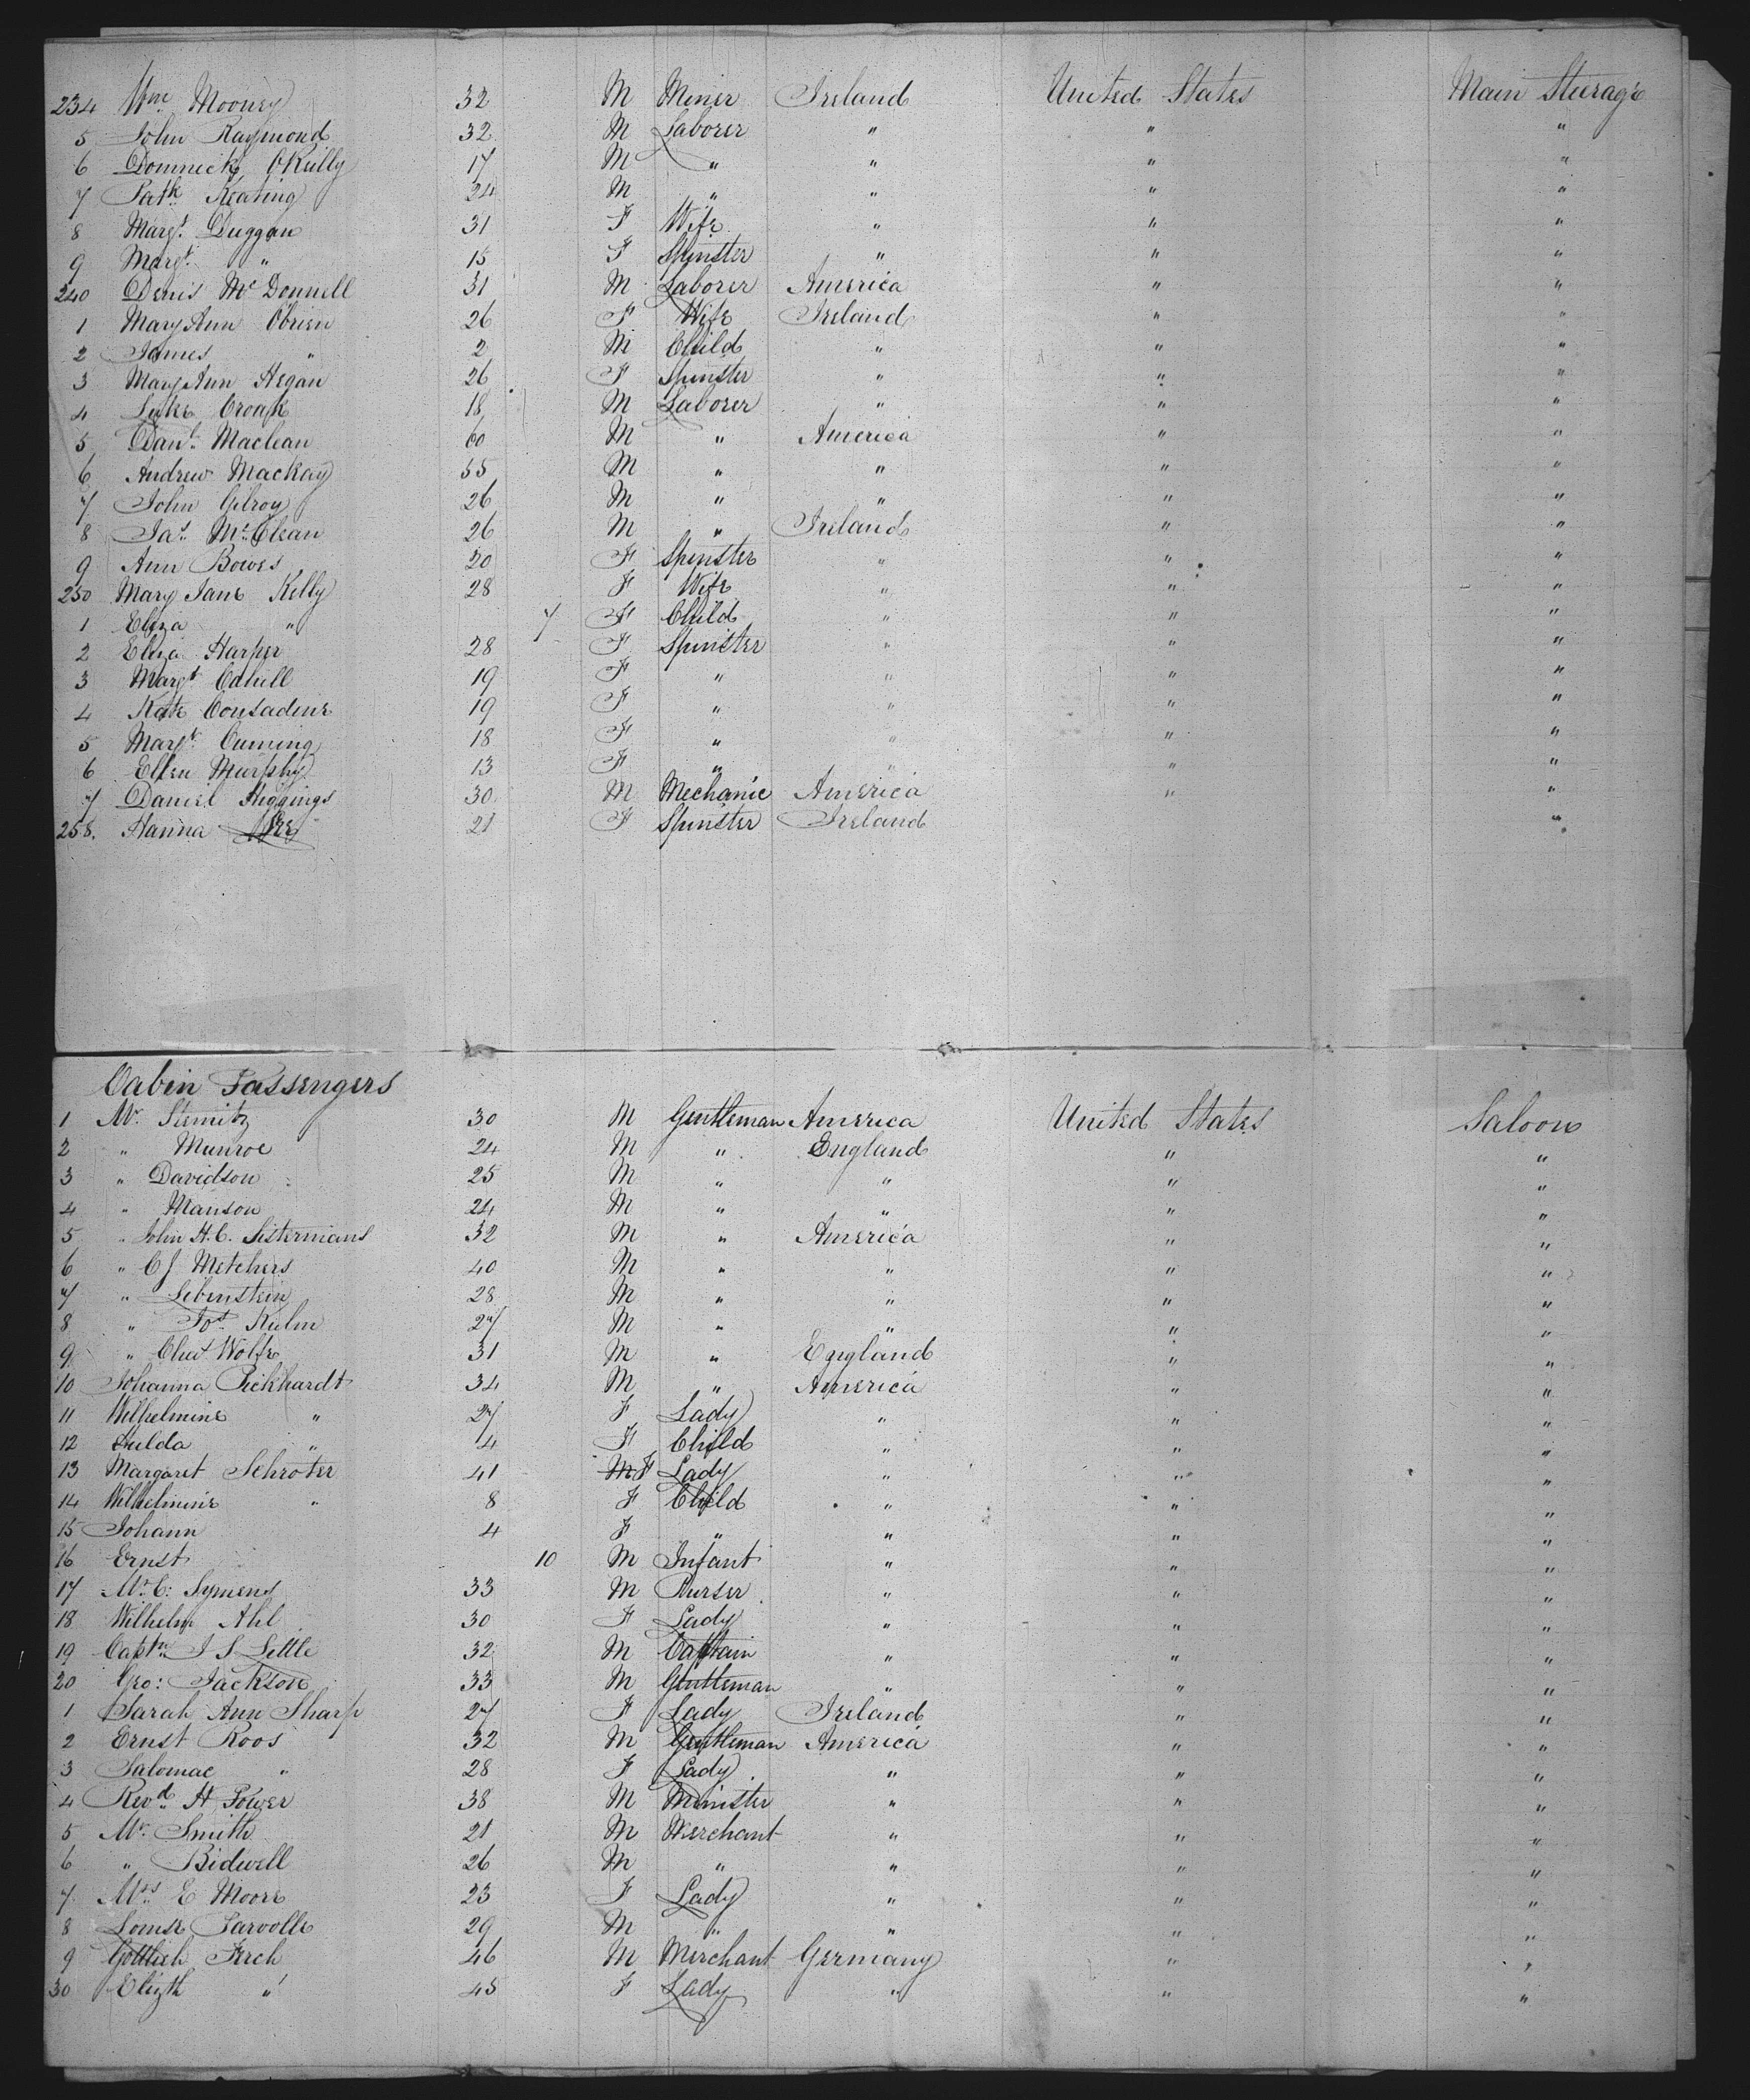 234 Wm Mooney 32 M Miner Ireland United States Main Steerage
5 John Raymond 32 M Laborer " " "
6 Domnick O'Reilly 17 M " " " "
7 Patk Keating 24 M " " " "
8 Margt Duggan 31 F Wife " " "
9 Margt " 15 F Spinster " " "
240 Denis McDonnell 31 M Laborer America " "
1 Mary Ann Obrien 26 F Wife Ireland " "
2 James " 2 M Child " " "
3 Mary Ann Hegan 26 F Spinster " " "
4 Luke Croak 18 M Laborer " " "
5 Danl Maclean 60 M " America " "
6 Andrew Mackay 55 M " " " "
7 John Gilroy 26 M " " " "
8 Jas McClean 26 M " Ireland " "
9 Ann Bowes 20 F Spinster " " "
250 Mary Jane Kelly 28 F Wife " " "
1 Eliza " 7 F Child " " "
2 Eliza Harper 28 F Spinster " " "
3 Margt Cahill 19 F " " " "
4 Kate Consadine 19 F " " " "
5 Margt Cuming 18 F " " " "
6 Ellen Murphy 13 F " " " "
7 Daniel Higgings 30 M Mechanic America " "
258. Hanna 21 F Spinster Ireland "
Cabin Passengers
1 Mr Stemitz 30 M Gentleman America United States Saloon
2 " Munroe 24 M " England " "
3 " Davidson 25 M " " " "
4 " Manson 24 M " " " "
5 " John H. C. Sistermans 32 M " America " "
6 " C J Metchers 40 M " " " "
7 " Lebenstein 28 M " " " "
8 " Jos Kulm 27 M " " " "
9 " Chas Wolfe 31 M " England " "
10 Johanna Pickhardt 34 M " America " "
11 Wilhelmine " 27 F Lady " " "
12 Hulda " 4 F Child " " "
13 Margaret Schroter 41 M F Lady " " "
14 Wilhelmine " 8 F Child " " "
15 Johann 4 F " " " "
16 Ernst 10 M Infant " " "
17 Mr C: Symens 33 M Purser " " "
18 Wilhelm Ahl 30 F Lady " " "
19 Captn J S Settle 32 M Captain " " "
20 Geo: Jackson 33 M Gentleman " " "
1 Sarah Ann Sharp 27 F Lady Ireland " "
2 Ernst Roos 32 M Gentleman America " "
3 Salomae " 28 F Lady " " "
4 Revd H Power 38 M Minister " " "
5 Mr Smith 21 M Merchant " " "
6 " Bidwell 26 M " " " "
7 Mrs E Moore 23 F Lady " " "
8 Louise Sarvolle 29 M " " " "
9 Gottlieb Ferch 46 M Merchant Germany " "
30 Elizth " 45 F Lady " " "